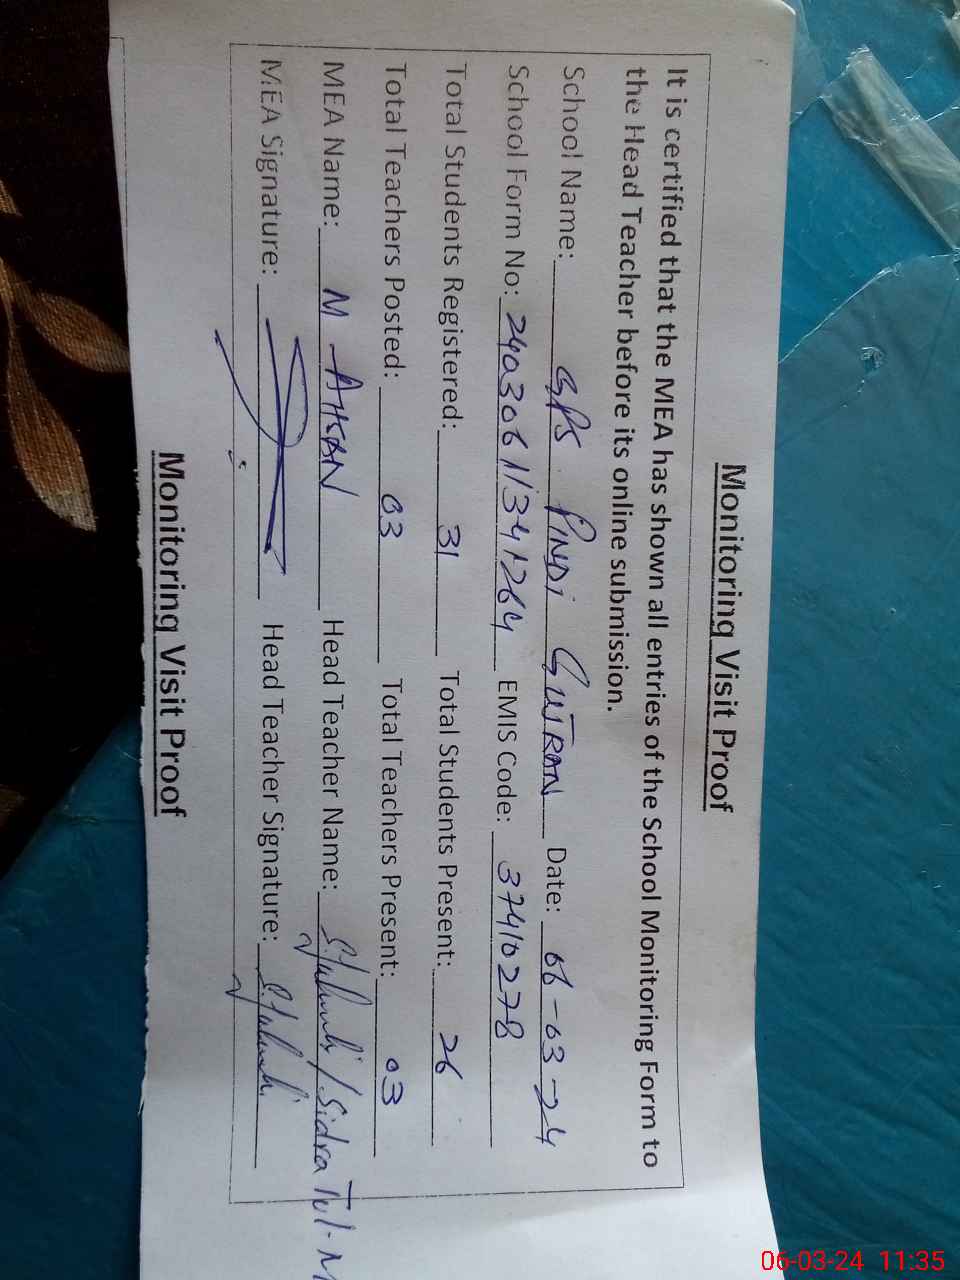 Monitoring Visit Proof
It is certified that the MEA has shown all entries of the School Monitoring Form to
the Head Teacher before its online submission.
School Name: GPS PINDI GUJRAN Date: 06-03-24
School Form No: 24030611341264 EMIS Code: 37410278
Total Students Registered: 31 Total Students Present: 26
Total Teachers Posted: 03 Total Teachers Present: 03
MEA Name: M AHSAN Head Teacher Name: / Sidra Tul-M
MEA Signature: Head Teacher Signature:
Monitoring Visit Proof
06-03-24 11:35